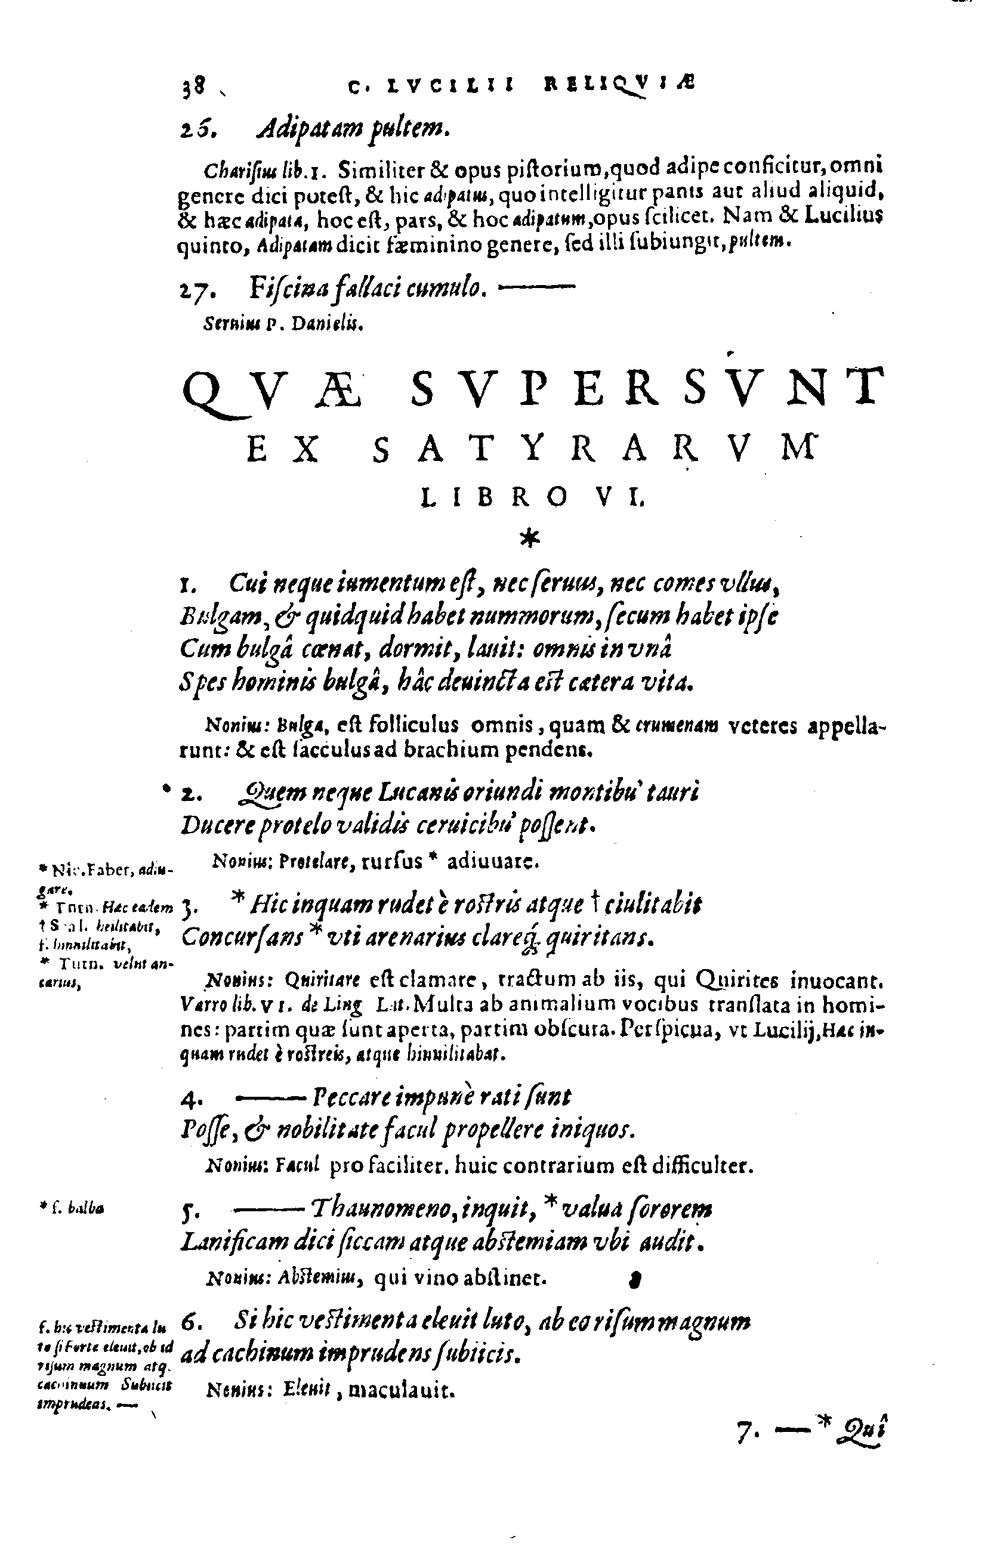 38 C. LVCILII RELIQVIÆ
26. Adipatam pultem.
Charisius lib.1. Similiter & opus pistorium, quod adipe conficitur, omni
genere dici potest, & hic adipatus, quo intelligitur panis aut aliud aliquid,
& hæc adipata, hoc est, pars, & hoc adipatum, opus scilicet. Nam & Lucilius
quinto, Adipatam dicit fæminino genere, sed illi subiungit, pultem.
27. Fiscina fallaci cumulo. ———
Seruius P. Danielis.
QVÆ SVPERSVNT
EX SATYRARVM
LIBRO VI.
*
1. Cui neque iumentum est, nec seruus, nec comes vllus,
Bulgam, & quidquid habet nummorum, secum habet ipse
Cum bulgâ cœnat, dormit, lauit: omnis in vnâ
Spes hominis bulgâ, hâc deuincta est cætera vita.
Nonius: Bulga, est folliculus omnis, quam & crumenam veteres appella-
runt: & est sacculus ad brachium pendens.
2. Quem neque Lucanis oriundi montibu' tauri
Ducere protelo validis ceruicibu' possent.
Nonius: Protelare, rursus * adiuuare.
* Nic. Faber, adiu-
gare.
3. * Hic inquam rudet è rostris atque † eiulitabit
Concursans * vti arenarius clareq́. quiritans.
* Turn. Hæc eadem
† Scal. heilitabit,
f. hinnilitabit,
* Turn. velut an-
carius,
Nonius: Quiritare est clamare, tractum ab iis, qui Quirites inuocant.
Varro lib. VI. de Ling Lat. Multa ab animalium vocibus translata in homi-
nes: partim quæ sunt aperta, partim obscura. Perspicua, vt Lucilij, Hæc in-
quam rudet è rostreis, atque hinnilitabat.
4. ——— Peccare impunè rati sunt
Posse, & nobilitate facul propellere iniquos.
Nonius: Facul pro faciliter, huic contrarium est difficulter.
5. ——— Thaunomeno, inquit, * valua sororem
Lanificam dici siccam atque abstemiam vbi audit.
* f. balba
Nonius: Abstemius, qui vino abstinet.
6. Si hic vestimenta eleuit luto, ab eo risum magnum
ad cachinum imprudens subiicis.
f. hic vestimenta lu
to si forte eleuit, ob id
risum magnum atq.
cachinnum Subiicis
imprudens. —
Nonius: Eleuit, maculauit.
7. — * Quî